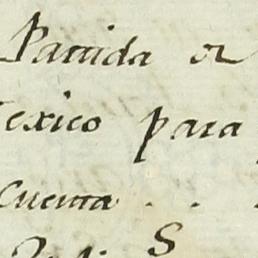 Partida
exico para
cuenta . .
S